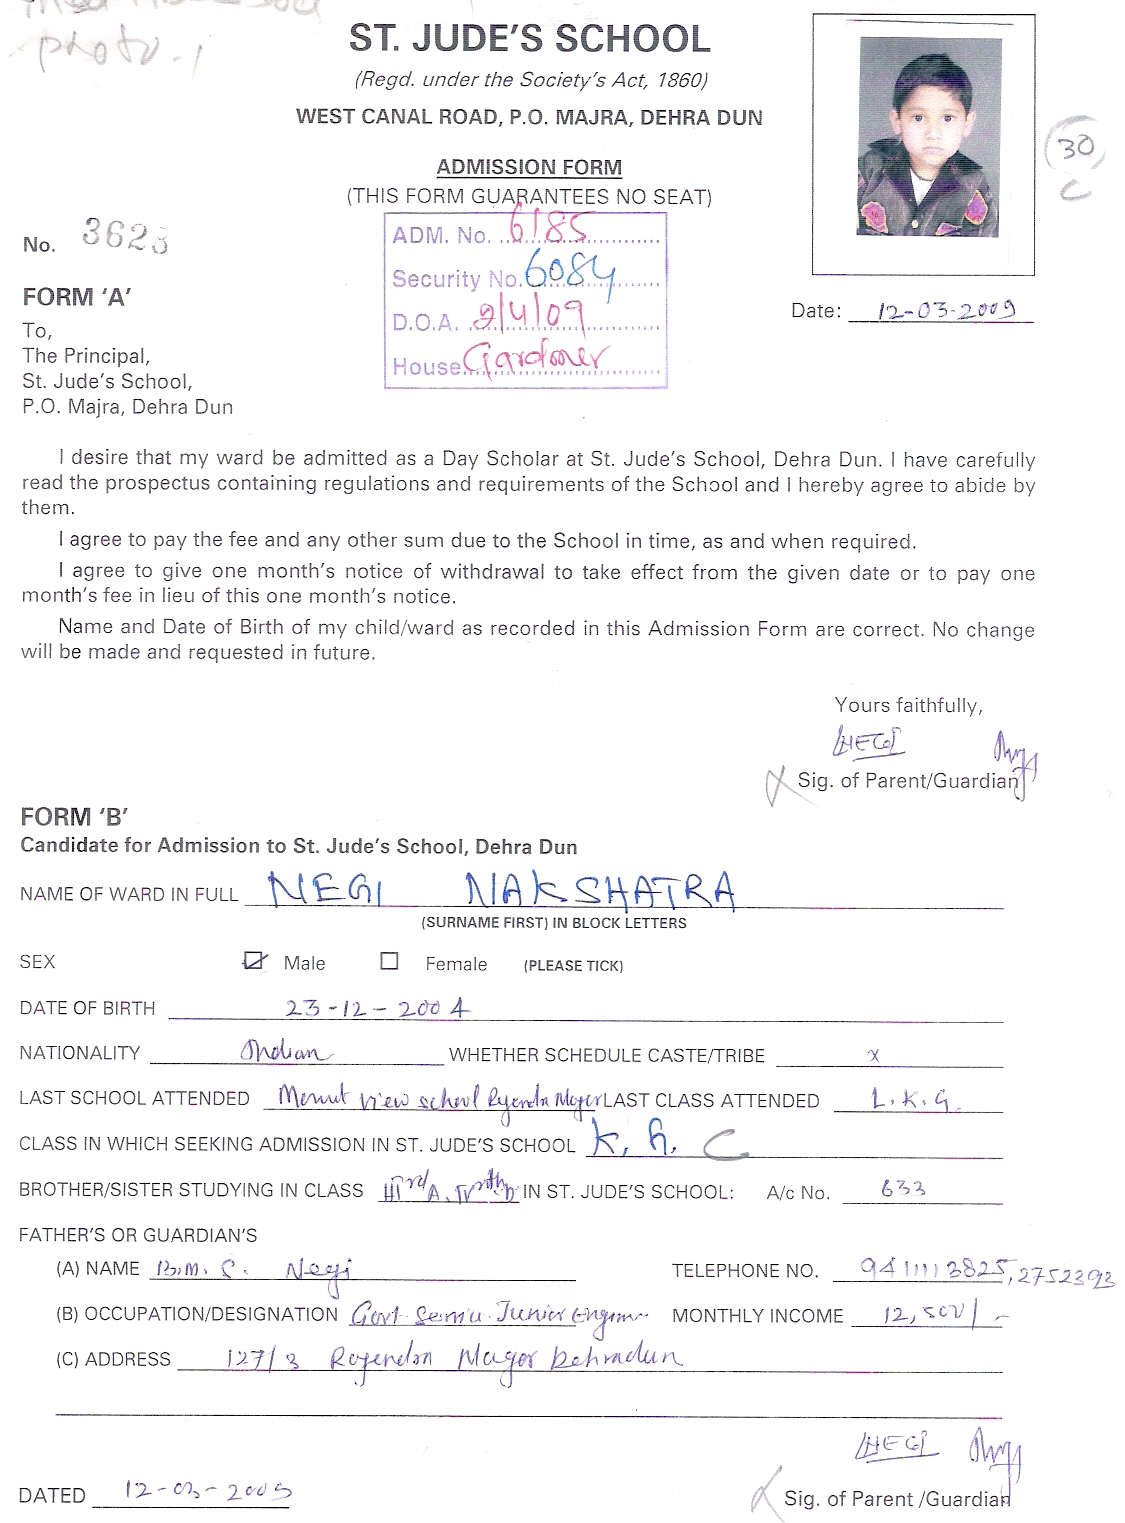 photo.1
ST. JUDE'S SCHOOL
(Regd. under the Society's Act, 1860)
WEST CANAL ROAD, P.O. MAJRA, DEHRA DUN
30
C
ADMISSION FORM
(THIS FORM GUARANTEES NO SEAT)
No. 3623
ADM. No. 6185
Security No. 6084
D.O.A. 2/4/09
House Gardner
FORM 'A'
Date: 12-03-2009
To,
The Principal,
St. Jude's School,
P.O. Majra, Dehra Dun
I desire that my ward be admitted as a Day Scholar at St. Jude's School, Dehra Dun. I have carefully
read the prospectus containing regulations and requirements of the School and I hereby agree to abide by
them.
I agree to pay the fee and any other sum due to the School in time, as and when required.
I agree to give one month's notice of withdrawal to take effect from the given date or to pay one
month's fee in lieu of this one month's notice.
Name and Date of Birth of my child/ward as recorded in this Admission Form are correct. No change
will be made and requested in future.
Yours faithfully,
NEGI
Sig. of Parent/Guardian
FORM 'B'
Candidate for Admission to St. Jude's School, Dehra Dun
NAME OF WARD IN FULL NEGI NAKSHATRA
(SURNAME FIRST) IN BLOCK LETTERS
SEX Male Female (PLEASE TICK)
DATE OF BIRTH 23-12-2004
NATIONALITY Indian WHETHER SCHEDULE CASTE/TRIBE x
LAST SCHOOL ATTENDED Mount view school LAST CLASS ATTENDED L.K.G.
CLASS IN WHICH SEEKING ADMISSION IN ST. JUDE'S SCHOOL K.G. C
BROTHER/SISTER STUDYING IN CLASS IIIrd A, IN ST. JUDE'S SCHOOL: A/c No. 633
FATHER'S OR GUARDIAN'S
(A) NAME B.M.S. Negi TELEPHONE NO. 9411113825, 2752393
(B) OCCUPATION/DESIGNATION Govt Junior MONTHLY INCOME 12,500/-
(C) ADDRESS 127/3 Rajendra Nagar Dehradun
NEGI
DATED 12-03-2009 Sig. of Parent /Guardian